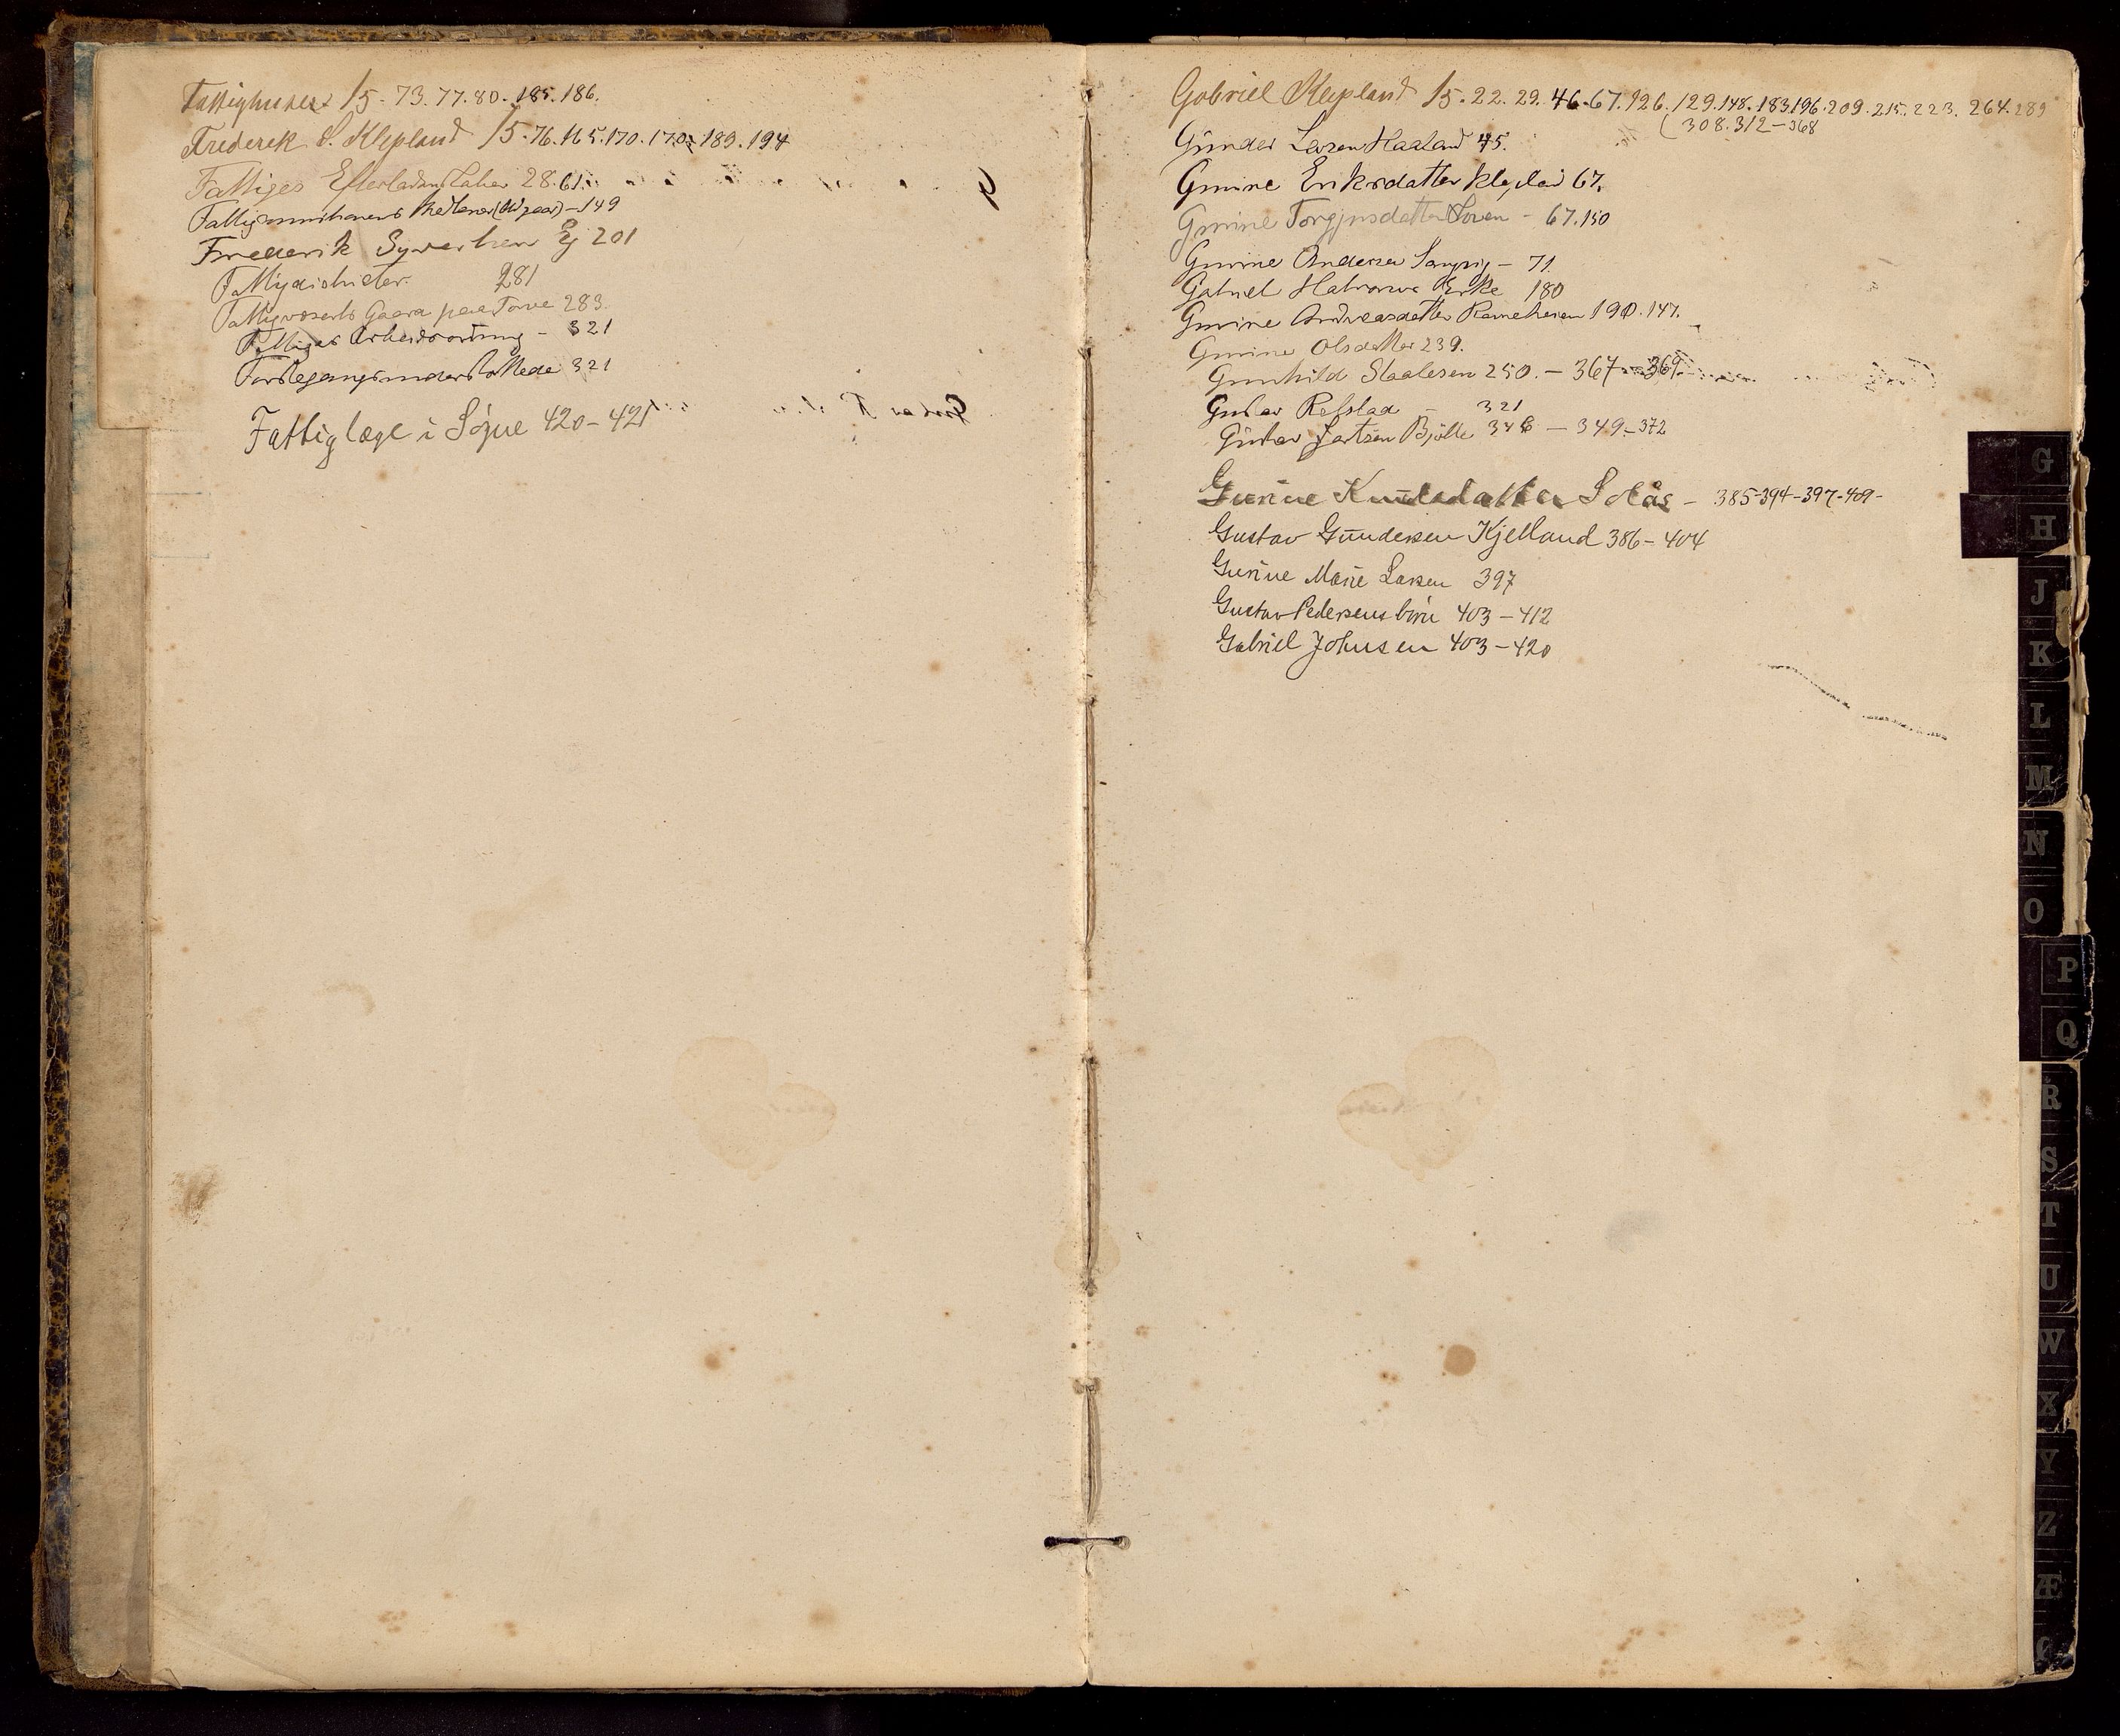 Fattighuset 15. 73. 77. 80. 185. 186.
Frederik S. Klepland 15. 76. 165. 170. 170. 189. 194
Fattiges Efterladenskaber 28. 61.
149
Frederik Syvertsen Eg 201
Fattigdistrikter. 281
Fattigvæsenets Gaard paa Torve 283.
Fattiges Arbeidsordning - 321
Førstegangsunderstøttede 321
Fattiglæge i Søgne 420-421
Gabriel Klepland 15. 22. 29. 46. 67. 126. 129. 148. 183. 196. 209. 215. 223. 264. 289
(308. 312-368
Gunder Larsen Haaland 45.
Gurine Eriksdatter Klepland 67.
Gurine Torgjusdatter 67. 150
Gurine Andersen - 71
Gabriel Enke 180
Gurine Andreasdatter 190. 147.
Gurine Olsdatter 239.
Gunhild Staalesen 250. - 367-369-
Gustav Refstad - 321
Gustav 346 - 349.-372
Gurine Knudsdatter Solås - 385-394-397-409-
Gustav Gundersen Kjelland 386-404
Gurine Marie Larsen 397
Gustav Pedersens børn 403-412
Gabriel Johnsen 403-420
G
H
J
K
L
M
N
O
P
Q
R
S
T
U
W
X
Y
Z
Æ